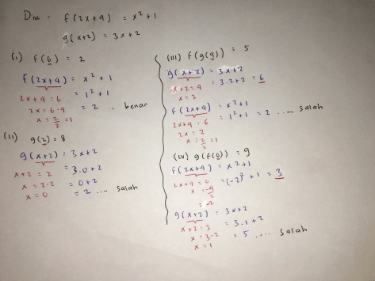 Dik = f(2x+4) = x²+1
g(x+2) = 3x+2
(i) f(6) = 2
f(2x+4) = x²+1
2x+4 = 6 = 1²+1
2x = 6-4 = 2 ... benar
x = 2/2 = 1
(ii) g(2) = 8
g(x+2) = 3x+2
x+2 = 2 = 3.0+2
x = 2-2 = 0+2
x = 0 = 2 ... salah
(iii) f(g(4)) = 5
g(x+2) = 3x+2
x+2 = 4 = 3.2+2 = 6
x = 2
f(2x+4) = x²+1
2x+4 = 6 = 1²+1 = 2 .... salah
2x = 2
x = 2/2 = 1
(iv) g(f(0)) = 9
f(2x+4) = x²+1
2x+4 = 0 = (-2)²+1 = 3
x = -4/2
= -2
g(x+2) = 3x+2
x+2 = 3 = 3.1+2
x = 3-2 = 5 .... salah
x = 1